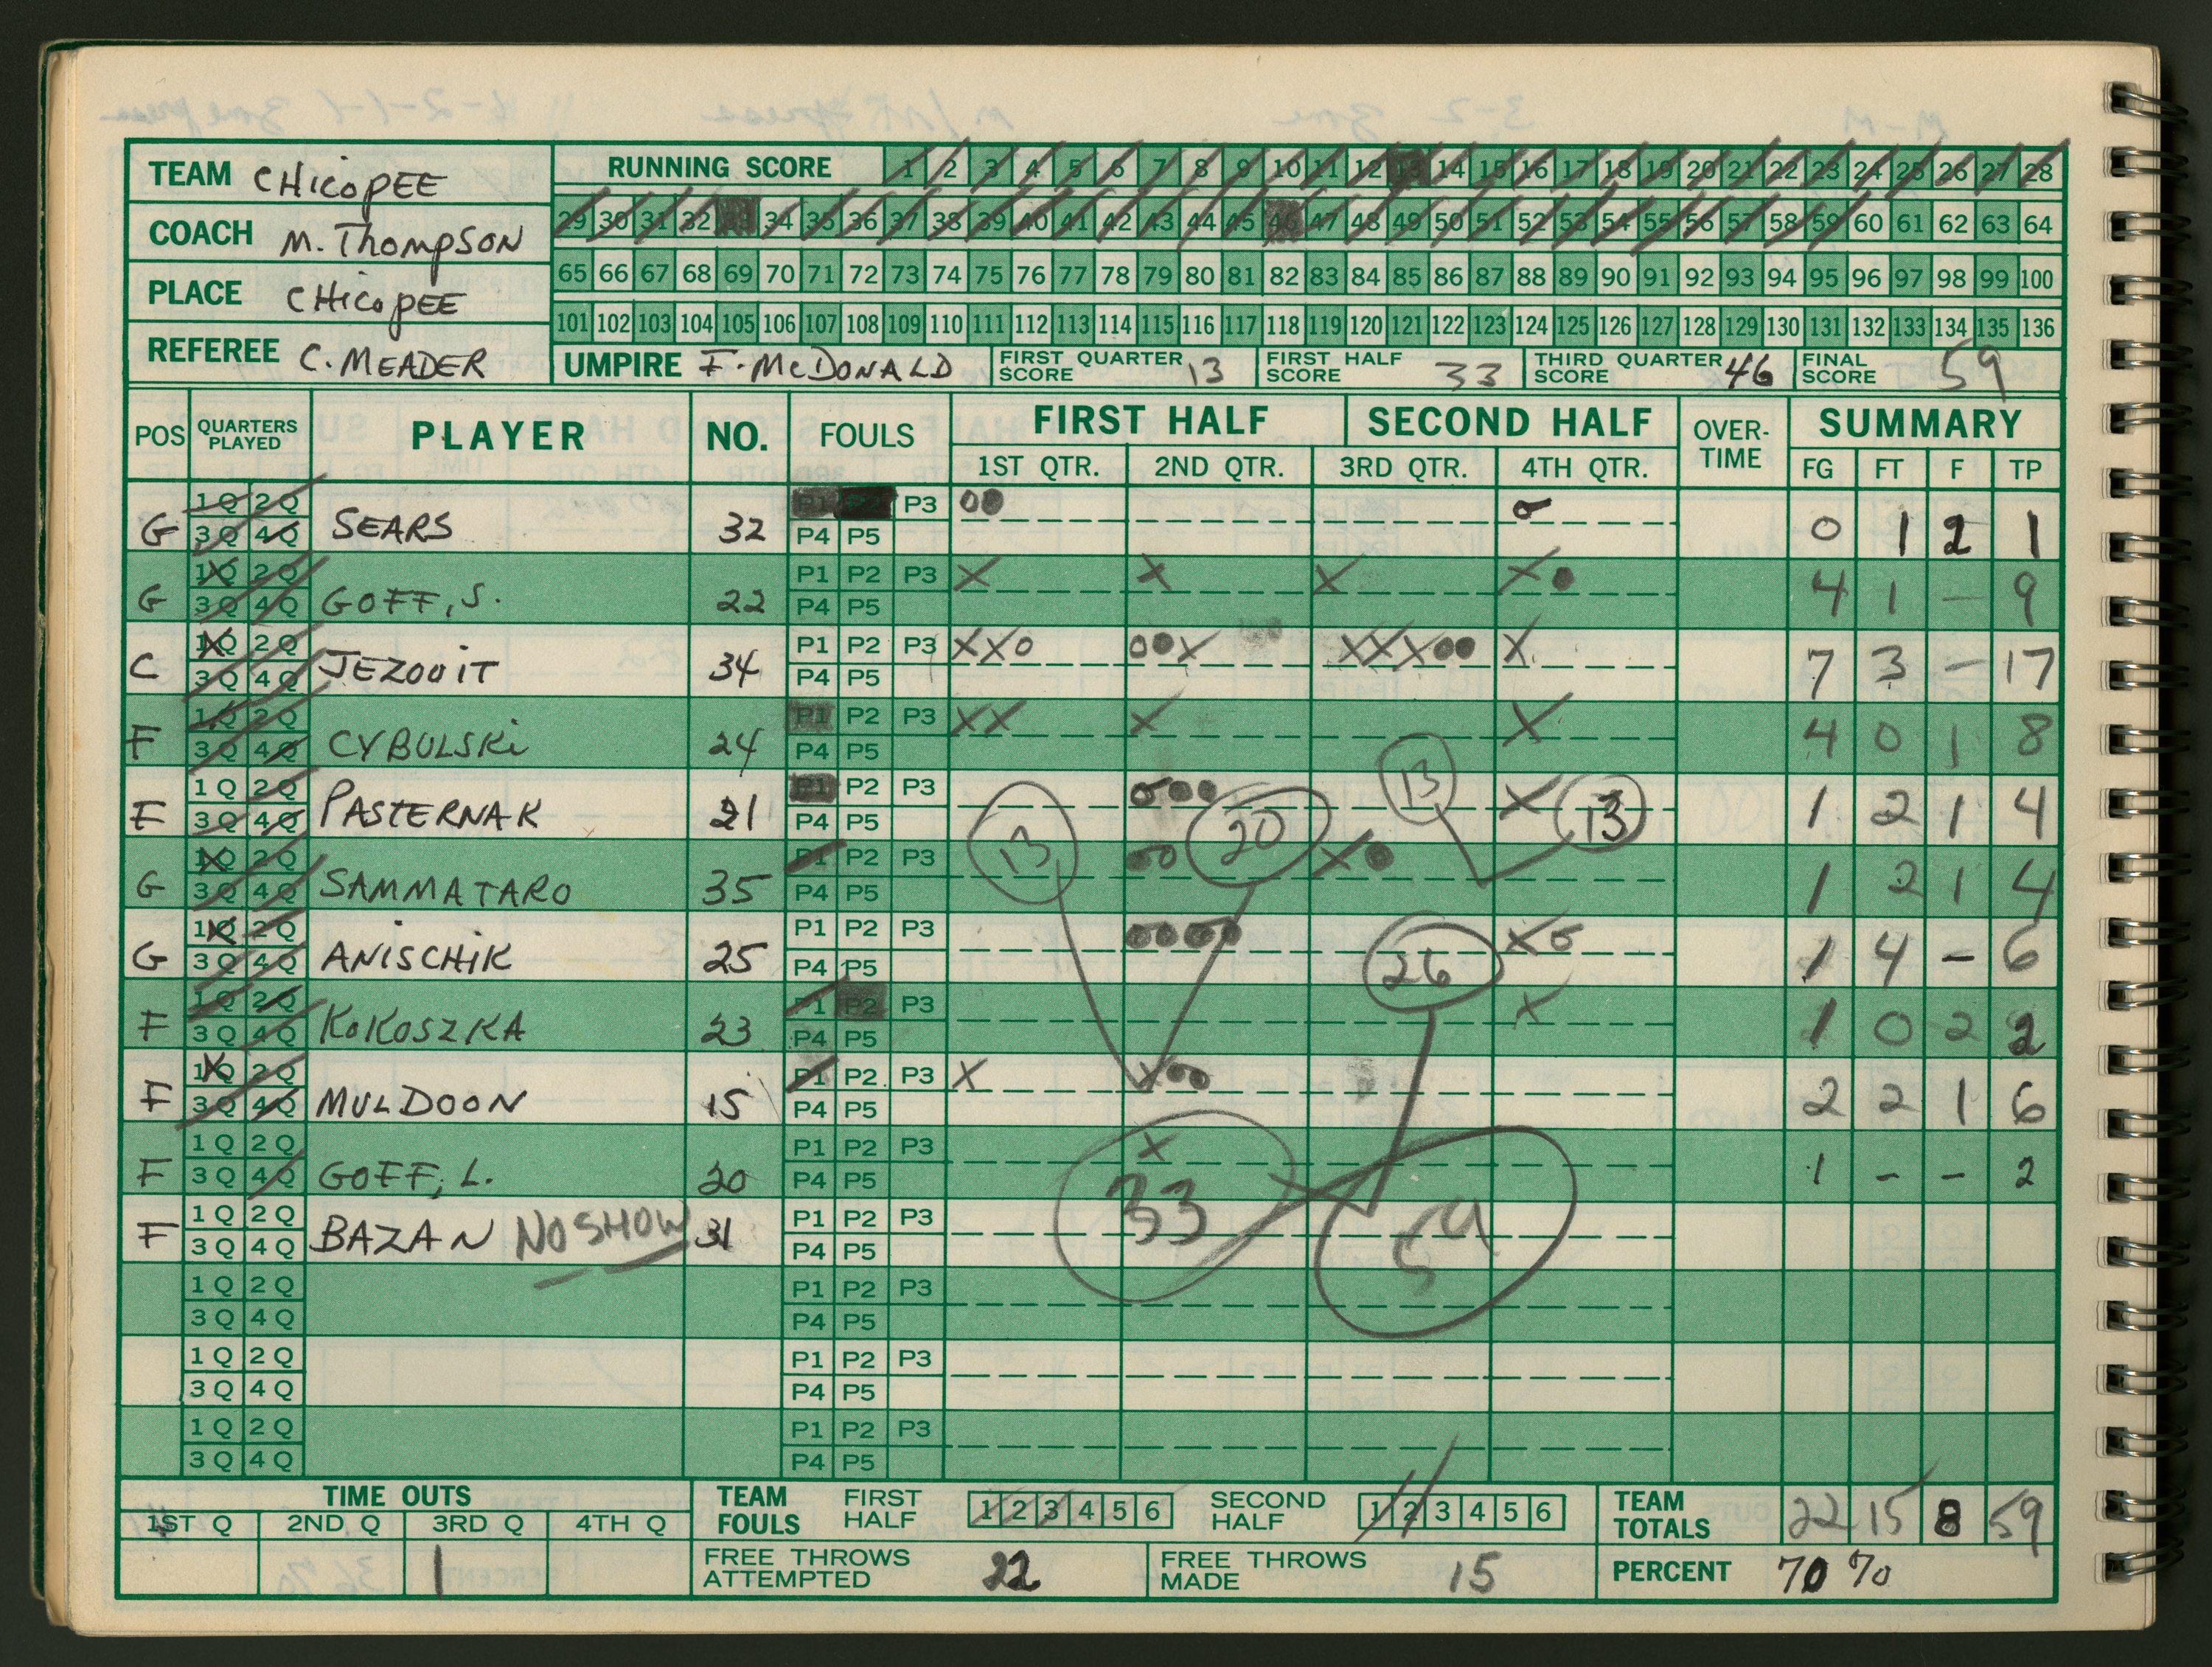 TEAM CHICOPEE
COACH M. THOMPSON
PLACE CHICOPEE
REFEREE C. MEADER
RUNNING SCORE 1 2 3 4 5 6 7 8 9 10 11 12 13 14 15 16 17 18 19 20 21 22 23 24 25 26 27 28
29 30 31 32 33 34 35 36 37 38 39 40 41 42 43 44 45 46 47 48 49 50 51 52 53 54 55 56 57 58 59 60 61 62 63 64
65 66 67 68 69 70 71 72 73 74 75 76 77 78 79 80 81 82 83 84 85 86 87 88 89 90 91 92 93 94 95 96 97 98 99 100
101 102 103 104 105 106 107 108 109 110 111 112 113 114 115 116 117 118 119 120 121 122 123 124 125 126 127 128 129 130 131 132 133 134 135 136
UMPIRE F. McDONALD FIRST QUARTER SCORE 13 FIRST HALF SCORE 33 THIRD QUARTER SCORE 46 FINAL SCORE 59
POS QUARTERS PLAYED PLAYER NO. FOULS FIRST HALF SECOND HALF OVER-TIME SUMMARY
1ST QTR. 2ND QTR. 3RD QTR. 4TH QTR. FG FT F TP
1 Q 2 Q P1 P2 P3
G 3 Q 4 Q SEARS 32 P4 P5 0 1 2 1
1 Q 2 Q P1 P2 P3 X X X X
G 3 Q 4 Q GOFF, S. 22 P4 P5 4 1 – 9
1 Q 2 Q P1 P2 P3 XXO OOX XXXOO X
C 3 Q 4 Q JEZOUIT 34 P4 P5 7 3 – 17
1 Q 2 Q P1 P2 P3 XX X X
F 3 Q 4 Q CYBULSKI 24 P4 P5 4 0 1 8
1 Q 2 Q P1 P2 P3 X
F 3 Q 4 Q PASTERNAK 21 P4 P5 13 20 13 13 1 2 1 4
1 Q 2 Q P1 P2 P3 X
G 3 Q 4 Q SAMMATARO 35 P4 P5 1 2 1 4
1 Q 2 Q P1 P2 P3 X
G 3 Q 4 Q ANISCHIK 25 P4 P5 26 1 4 – 6
1 Q 2 Q P1 P2 P3 X
F 3 Q 4 Q KOKOSZKA 23 P4 P5 1 0 2 2
1 Q 2 Q P1 P2 P3 X X
F 3 Q 4 Q MULDOON 15 P4 P5 2 2 1 6
1 Q 2 Q P1 P2 P3 X
F 3 Q 4 Q GOFF, L. 20 P4 P5 1 - - 2
1 Q 2 Q P1 P2 P3 33 59
F 3 Q 4 Q BAZAN NO SHOW 31 P4 P5
1 Q 2 Q P1 P2 P3
3 Q 4 Q P4 P5
1 Q 2 Q P1 P2 P3
3 Q 4 Q P4 P5
1 Q 2 Q P1 P2 P3
3 Q 4 Q P4 P5
TIME OUTS TEAM FOULS FIRST HALF 1 2 3 4 5 6 SECOND HALF 1 2 3 4 5 6 TEAM TOTALS 22 15 8 59
1ST Q 2ND Q 3RD Q 4TH Q
1 FREE THROWS ATTEMPTED 22 FREE THROWS MADE 15 PERCENT 70 %